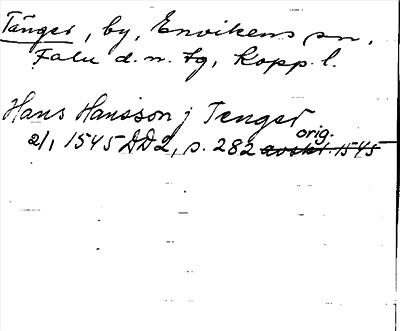 Tänger, by, Envikens sn,
Falu d. n. tg, Kopp. l.
Hans Hansson j Tenger
2/1 1545 DD2, s. 282 avskr. 1545 orig.